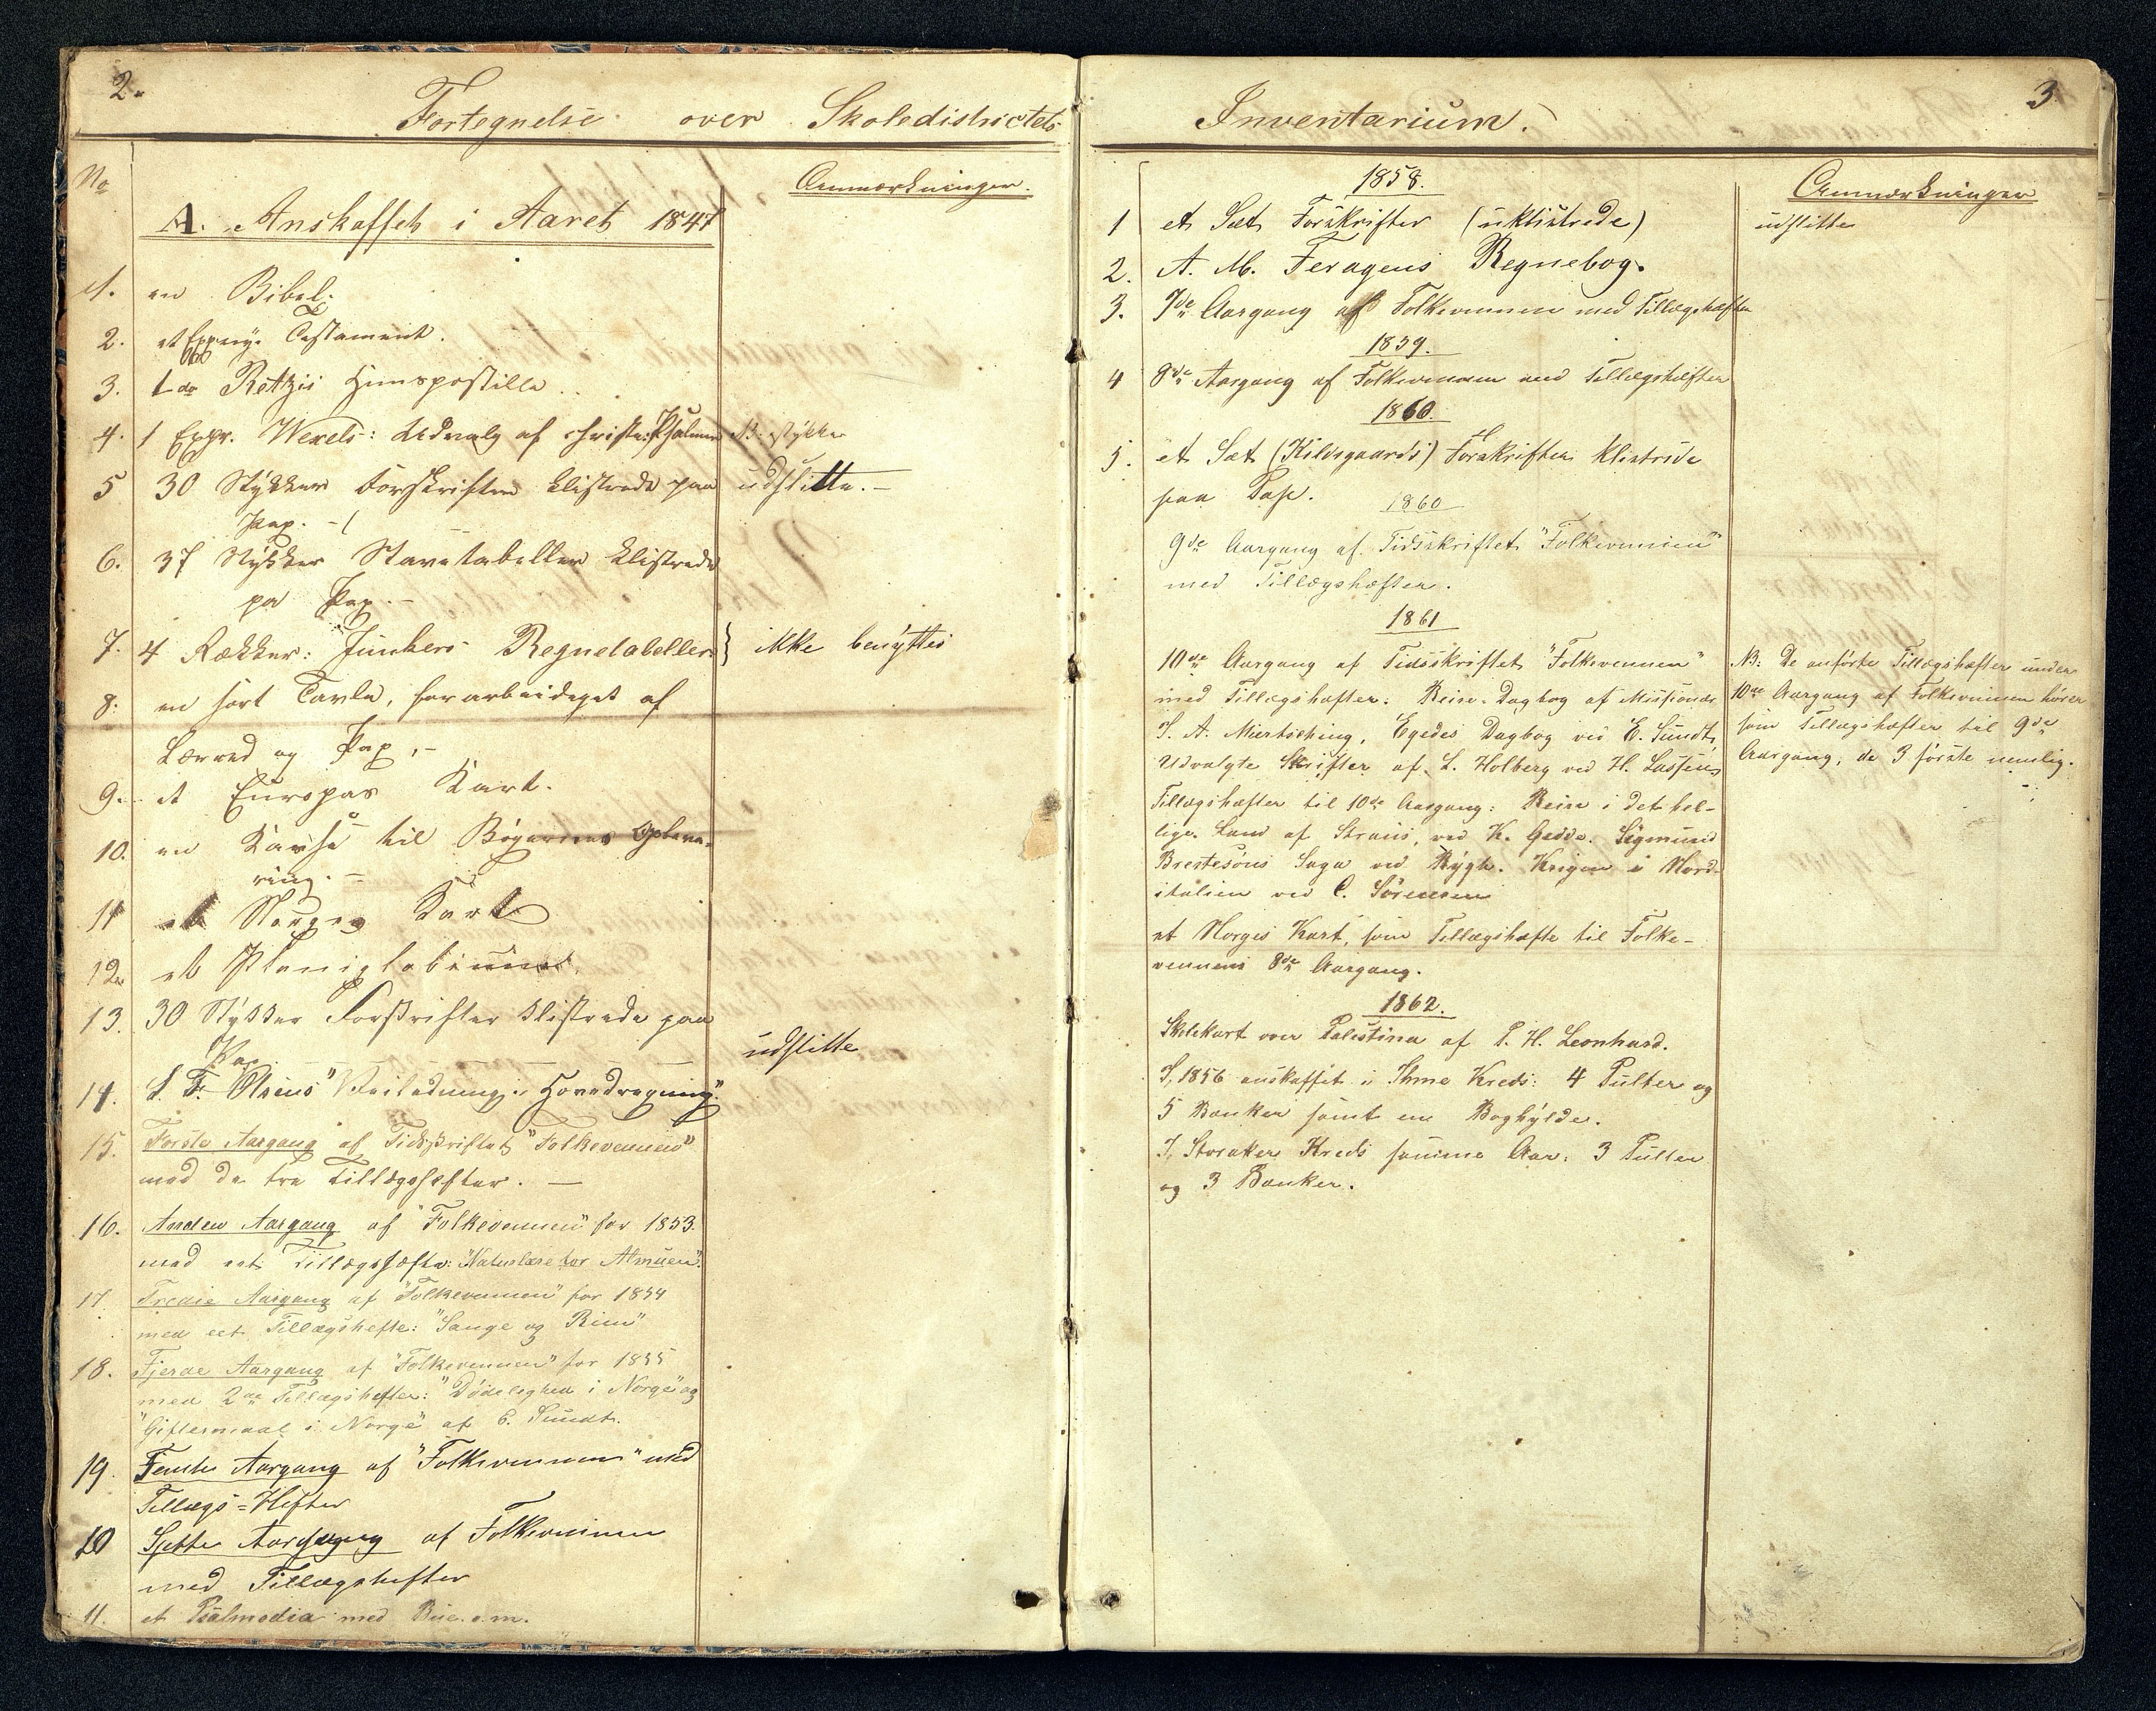 2.
Fortegnelse over Skoledistrictets
No
Anmærkninger.
A. Anskaffet i Aaret 1841
1. en Bibel.
2. et Expl. nye Testament.
3. 1 do Rettzii Huuspostille
4. 1 Expr. Wexels: Udvalg af christe. Psalmer
5 30 Stykker Forskrifter klistrede paa udslitte.-
Pap. -
6. 37 Stykker Stavetabeller klistrede
pa Pap. -
7. 4 Rækker: Junkers Regnetabeller. } ikke benyttes
8. en sort Tavle, forarbeideget af
Lærred og Pap, -
9. et Europas Kart.
10. en Kasse til Bøgernes Opbeva-
ring. -
11 et Norges Kart
12. et Planiglobium.
13. 30 Stykker Forskrifter klistrede paa
Pap. udslitte
14. Ursins "Veiledning i Hovedregning".
15. Første Aargang af Tidsskriftet "Folkevennen"
med de tre Tillægshefter. -
16. Anden Aargang af "Folkevennen" for 1853.
med eet Tillægshefte: "Naturlære for Almuen".
17. Tredie Aargang af "Folkevennen" for 1854
med eet Tillægshefte: "Sange og Rim"
18. Fjerde Aargang af "Folkevennen" for 1855
med 2de Tillægshefter: "Dødelighed i Norge" og
"Giftermaal i Norge" af E. Sundt.
19. Femte Aargang af "Folkevennen" med
Tillægs-Hefter
20 Sjette Aargang af Folkevennen
med Tillægshefter
11. et Psalmodia med Bue. o. m.
3
Inventarium.
Anmærkninger
1858.
1 et Sæt Forskrifter (uklistrede) udslitte
2. A. M. Feragens Regnebog.
3. 7de Aargang af Folkevennen med Tillægshefter
1859.
4 8de Aargang af Folkevennen med Tillægshefter
1860.
5. et Sæt (Kildsgaards) Forskrifter klistrede
paa Pap.
1860
9de Aargang af Tidsskriftet "Folkevennen"
med Tillægshefter.
1861
10de Aargang af Tidsskriftet "Folkevennen"
med Tillægshefter: Reise-Dagbog af Missionær
J. A. Miertsching, Egedes Dagbog ved E. Sundt,
Udvalgte Skrifter af L. Holberg ved H. Lassen,
Tillægshefter til 10de Aargang: Reise i det hel-
lige Land af Strauss, ved K. Gjedde. Sigmund
Brestesøns Saga ved Rygh. Krigen i Nord-
italien ved C. Sørensen
et Norges Kart, som Tillægshefte til Folke-
vennens 8de Aargang.
NB: De anførte Tillægshefter under
10de Aargang af Folkevennen hører
som Tillægshefter til 9de
Aargang, de 3 første nemlig.
1862.
Skolekart over Palestina af P. H. Leonhard.
I, 1856 anskaffet i Ihme Kreds: 4 Pulter og
5 Bænker samt en Boghylde.
I, Storaker Kreds samme Aar: 3 Pulter
og 3 Bænker.